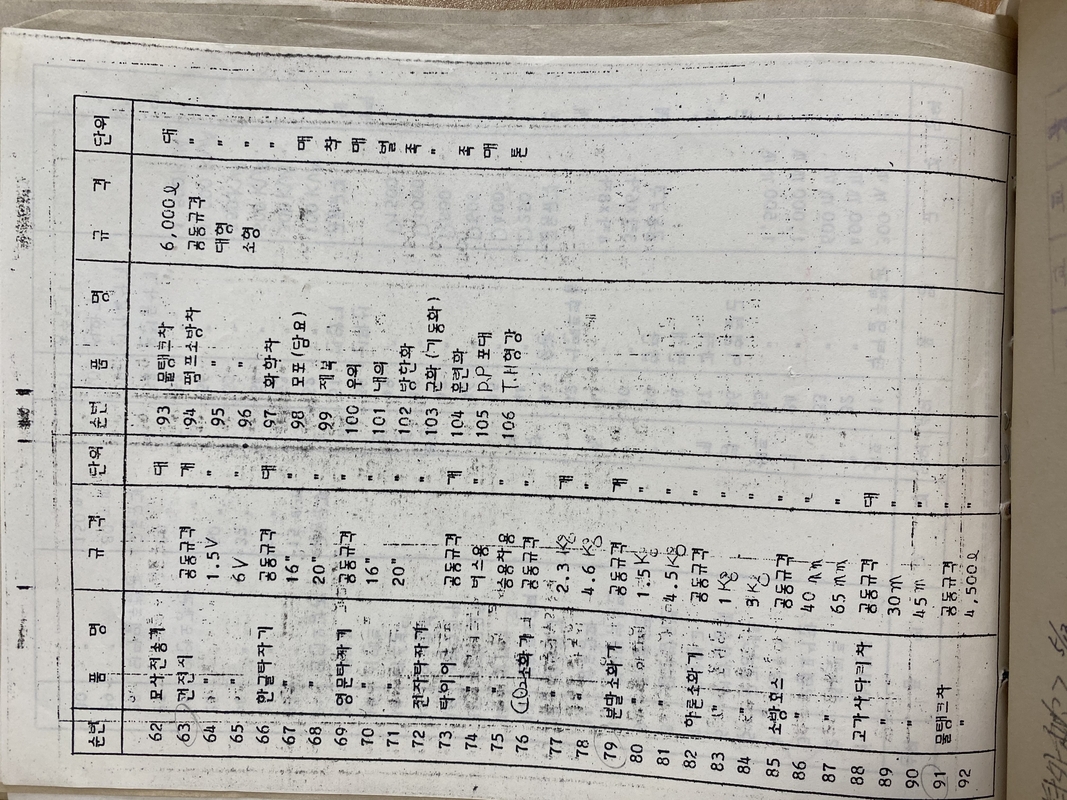 순번 품 명 규 격 단위
62 모사전송기 대
63 건전지 공동규격 개
64 " 1.5V "
65 " 6V "
66 한글타자기 공동규격 대
67 " 16" "
68 " 20" "
69 영문타자기 공동규격 "
70 " 16" "
71 " 20" "
72 전자타자기 "
73 타이어 공동규격 개
74 " 버스용 "
75 " 승용차용 "
76 소화기 공동규격 "
77 " 2.3 Kg 개
78 " 4.6 Kg "
79 분말소화기 공동규격 개
80 " 1.5 Kg "
81 " 4.5 Kg "
82 하론소화기 공동규격 "
83 " 1 Kg "
84 " 3 Kg "
85 소방호스 공동규격 "
86 " 40 mm "
87 " 65 mm "
88 고가사다리차 공동규격 대
89 " 30m "
90 " 45m "
91 물탱크차 공동규격 "
92 " 4,500ℓ "
순번 품 명 규 격 단위
93 물탱크차 6,000ℓ 대
94 펌프소방차 공동규격 "
95 " 대형 "
96 " 소형 "
97 화학차 "
98 모포(담요) 매
99 제복 착
100 우의 매
101 내의 벌
102 방한화 족
103 군화(기동화) "
104 훈련화 족
105 P.P 포대 매
106 T.H형강 톤